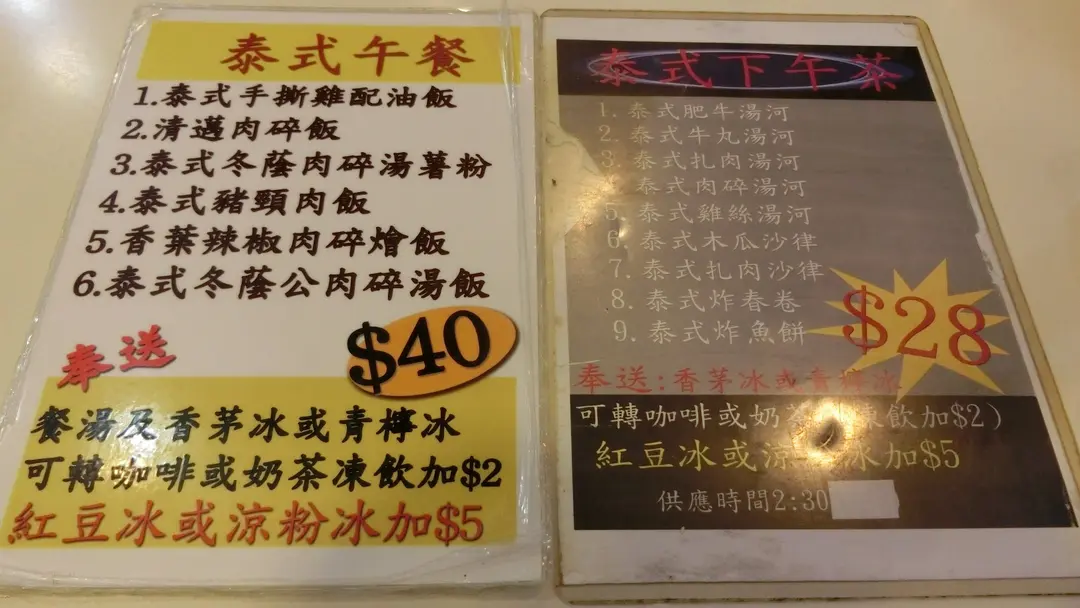 泰式午餐
1.泰式手撕雞配油飯
2.清邁肉碎飯
3.泰式冬蔭肉碎湯薯粉
4.泰式豬頸肉飯
5.香葉辣椒肉碎燴飯
6.泰式冬蔭公肉碎湯飯
奉送
$40
餐湯及香茅冰或青檸冰
可轉咖啡或奶茶凍飲加$2
紅豆冰或涼粉冰加$5
泰式下午茶
1. 泰式肥牛湯河
2. 泰式牛丸湯河
3. 泰式扎肉湯河
4. 泰式肉碎湯河
5. 泰式雞絲湯河
6. 泰式木瓜沙律
7. 泰式扎肉沙律
8. 泰式炸春卷
9. 泰式炸魚餅
$28
奉送:香茅冰或青檸冰
可轉咖啡或奶茶凍飲加$2)
紅豆冰或涼 冰加$5
供應時間2:30